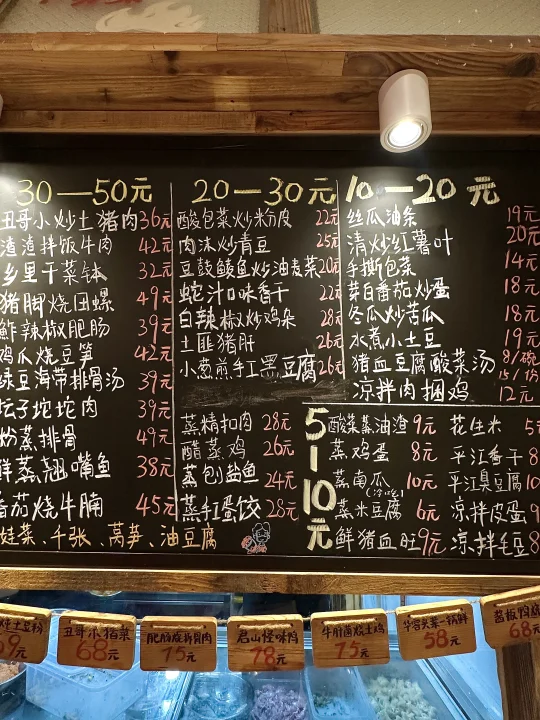 30—50元
丑哥小炒土猪肉36元
渣渣拌饭牛肉 42元
乡里干菜钵 32元
猪脚烧田螺 49元
鲊辣椒肥肠 39元
鸡爪烧豆笋 42元
绿豆海带排骨汤 39元
坛子坨坨肉 39元
粉蒸排骨 49元
鲜蒸翘嘴鱼 38元
番茄烧牛腩 45元
娃菜、千张、莴笋、油豆腐
20—30元
酸包菜炒米粉皮 22元
肉沫炒青豆 25元
豆豉鲮鱼炒油麦菜20元
蛇汁口味香干 22元
白辣椒炒鸡杂 28元
土匪猪肝 26元
小葱煎手工黑豆腐26元
蒸精扣肉 28元
醋蒸鸡 26元
蒸刨盐鱼 24元
蒸手工蛋饺 28元
10—20元
丝瓜油条 19元
清炒红薯叶 20元
手撕包菜 14元
茭白番茄炒蛋 18元
冬瓜炒苦瓜 18元
水煮小土豆 19元
猪血豆腐酸菜汤 8/碗 15/份
凉拌肉捆鸡 12元
5—10元
酸菜蒸油渣 9元
蒸鸡蛋 8元
蒸南瓜 10元
蒸米豆腐 6元
鲜猪血旺9元
花生米 5
平江香干 8
平江臭豆腐 10
凉拌皮蛋 9
凉拌毛豆 8
炖土豆粉
69元
丑哥杀猪菜
68元
肥肠烧拆骨肉
75元
君山怪味鸭
78元
牛肝菌烧土鸡
75元
华容芥菜一锅鲜
58元
酱板鸭
68元